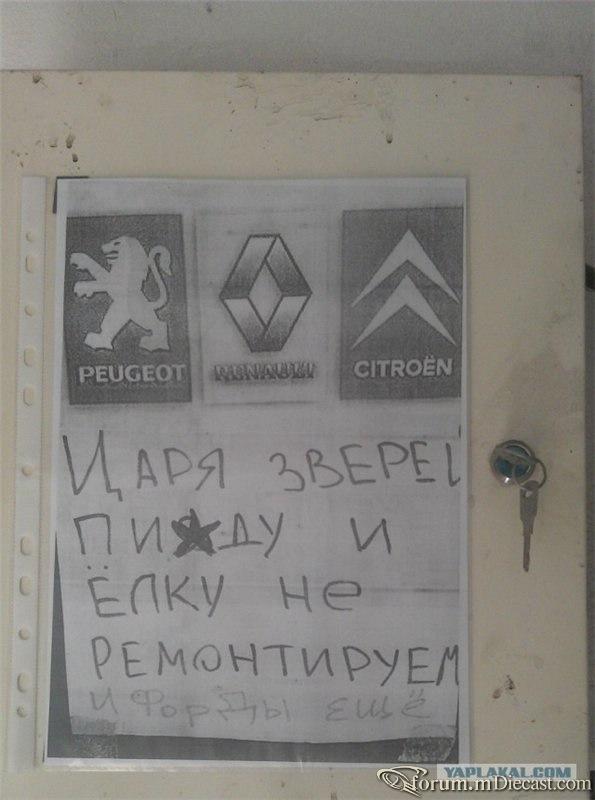 PEUGEOT RENAULT CITROËN
ЦАРЯ ЗВЕРЕЙ
ПИ★ДУ И
ЁЛКУ не
РЕМОНТИРУЕМ
и Форды ещё
YAPLAKAL.COM
forum.mDiecast.com